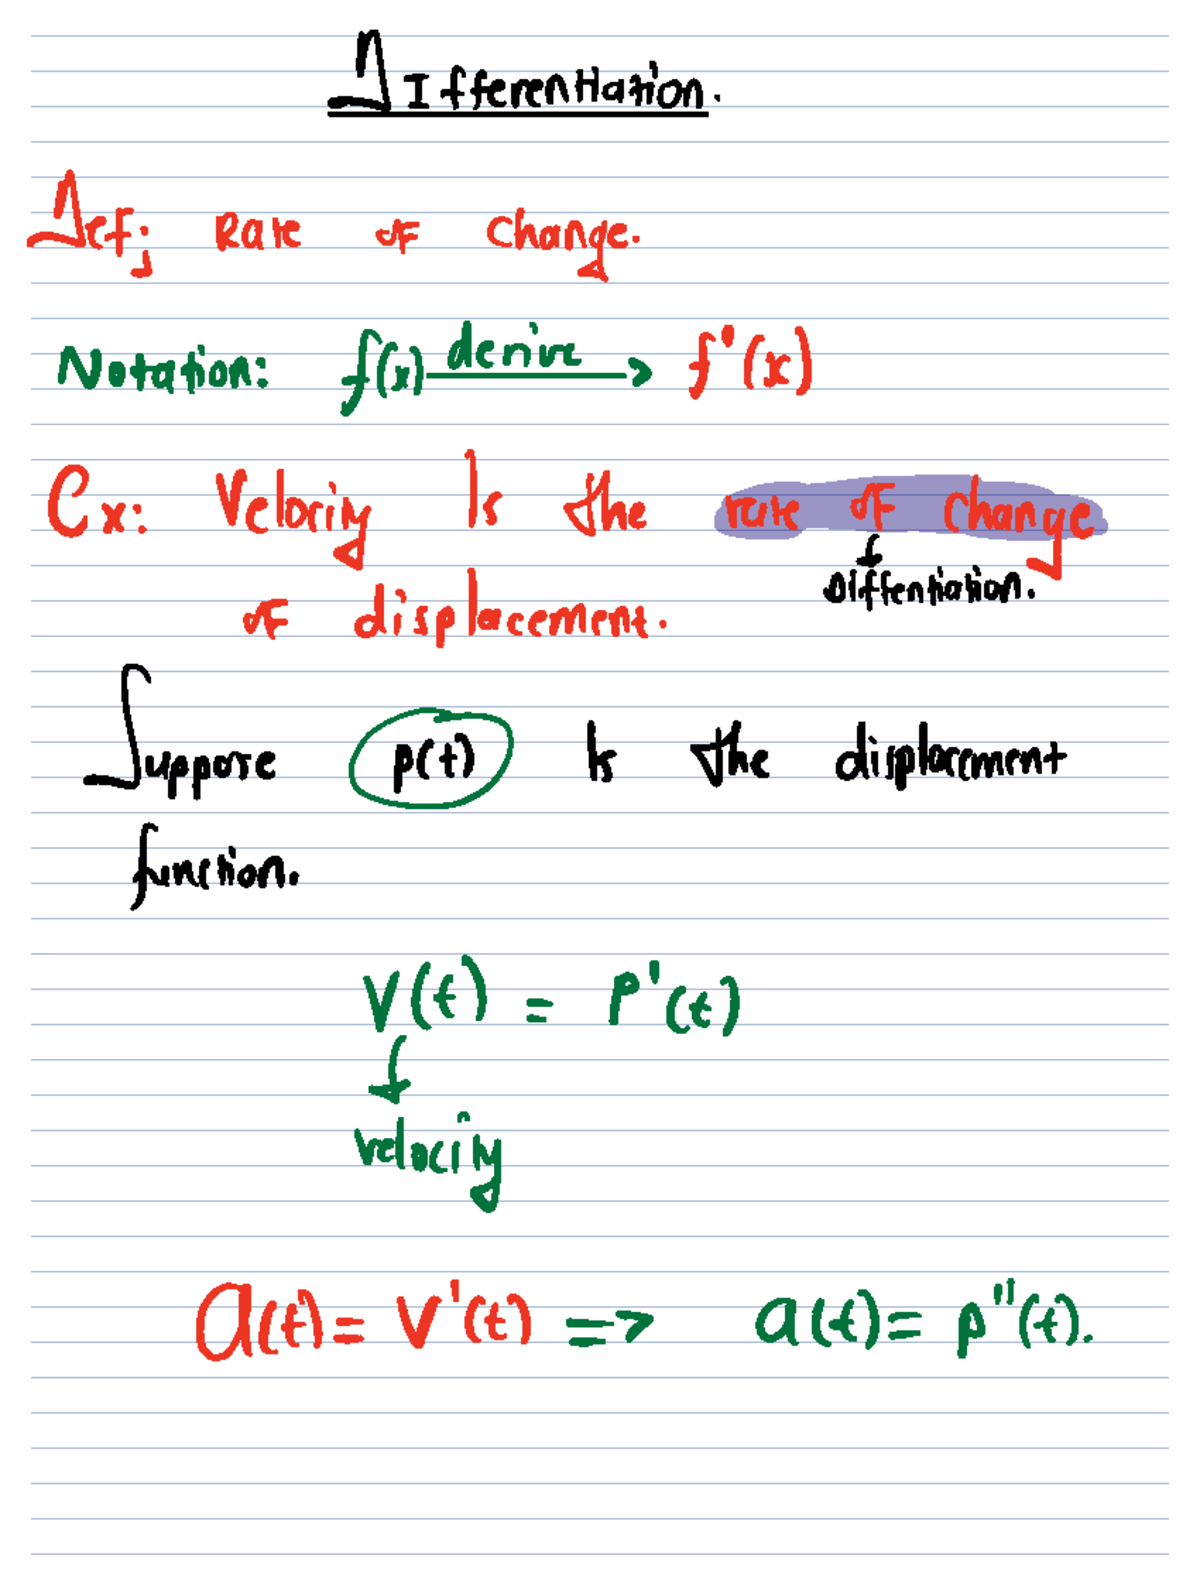 Differentiation.
Def; Rate of Change.
Notation: f(x) derive → f'(x)
Ex: Velocity Is the rate of Change
↓
Diffentiation.
of displacement.
Suppose p(t) Is the displacement
function.
V(t) = P'(t)
↓
velocity
a(t) = V'(t) => a(t) = p"(t).